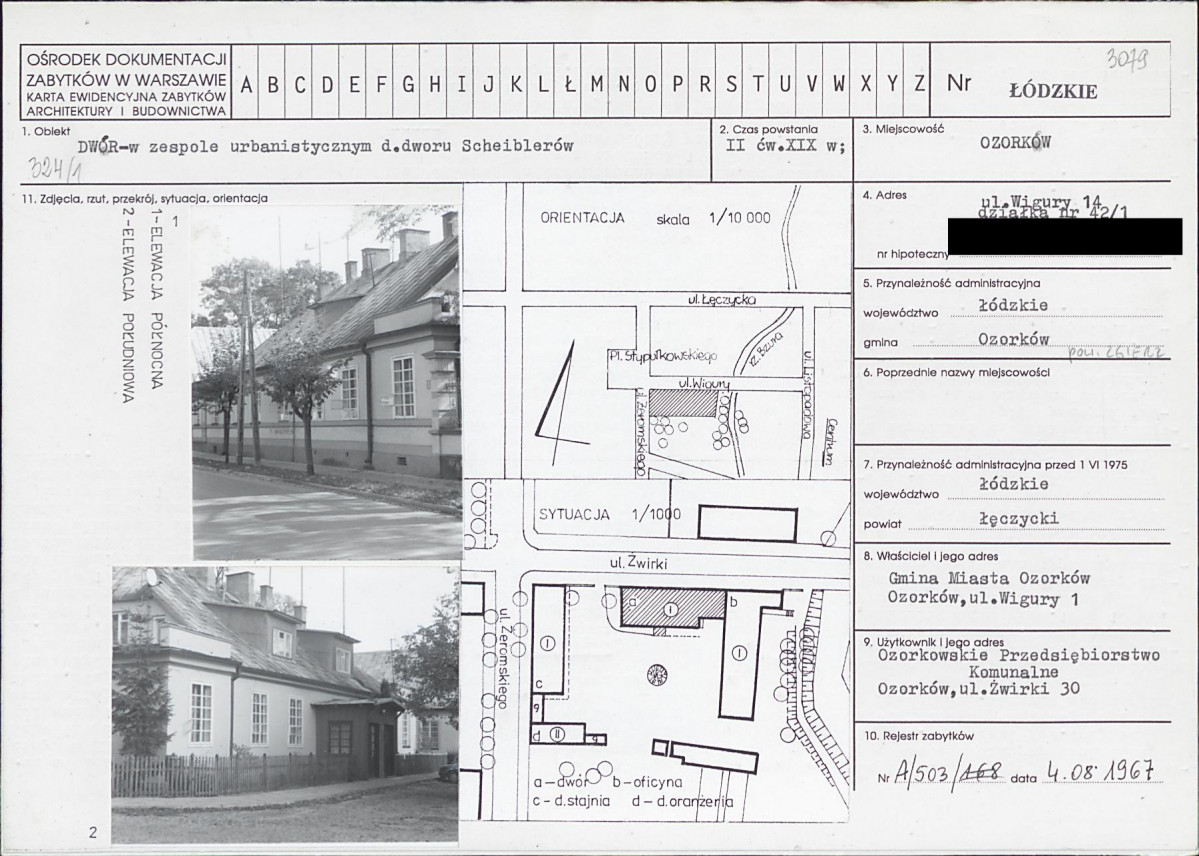 OŚRODEK DOKUMENTACJI
ZABYTKÓW W WARSZAWIE
KARTA EWIDENCYJNA ZABYTKÓW
ARCHITEKTURY I BUDOWNICTWA
A B C D E F G H I J K L Ł M N O P R S T U V W X Y Z
Nr ŁÓDZKIE
3079
1. Obiekt
DWÓR-w zespole urbanistycznym d.dworu Scheiblerów
324/1
2. Czas powstania
II ćw.XIX w;
3. Miejscowość
OZORKÓW
11. Zdjęcia, rzut, przekrój, sytuacja, orientacja
1
1-ELEWACJA PÓŁNOCNA
2-ELEWACJA POŁUDNIOWA
2
ORIENTACJA skala 1/10 000
ul. Łęczycka
Pl. Stypułkowskiego
rz. Bzura
ul. Wigury
ul. Żeromskiego
ul. Listopadowa
Centrum
SYTUACJA 1/1000
ul. Żwirki
ul. Żeromskiego
a
I
b
I
I
c
g
d
II
g
a-dwór b-oficyna
c-d.stajnia d-d.oranżeria
4. Adres
ul.Wigury 14
działka nr 42/1
nr hipoteczny
5. Przynależność administracyjna
województwo łódzkie
gmina Ozorków
pow. ZGIERZ
6. Poprzednie nazwy miejscowości
7. Przynależność administracyjna przed 1 VI 1975
województwo łódzkie
powiat łęczycki
8. Właściciel i jego adres
Gmina Miasta Ozorków
Ozorków,ul.Wigury 1
9. Użytkownik i jego adres
Ozorkowskie Przedsiębiorstwo
Komunalne
Ozorków,ul.Żwirki 30
10. Rejestr zabytków
Nr A/503/168 data 4.08 1967